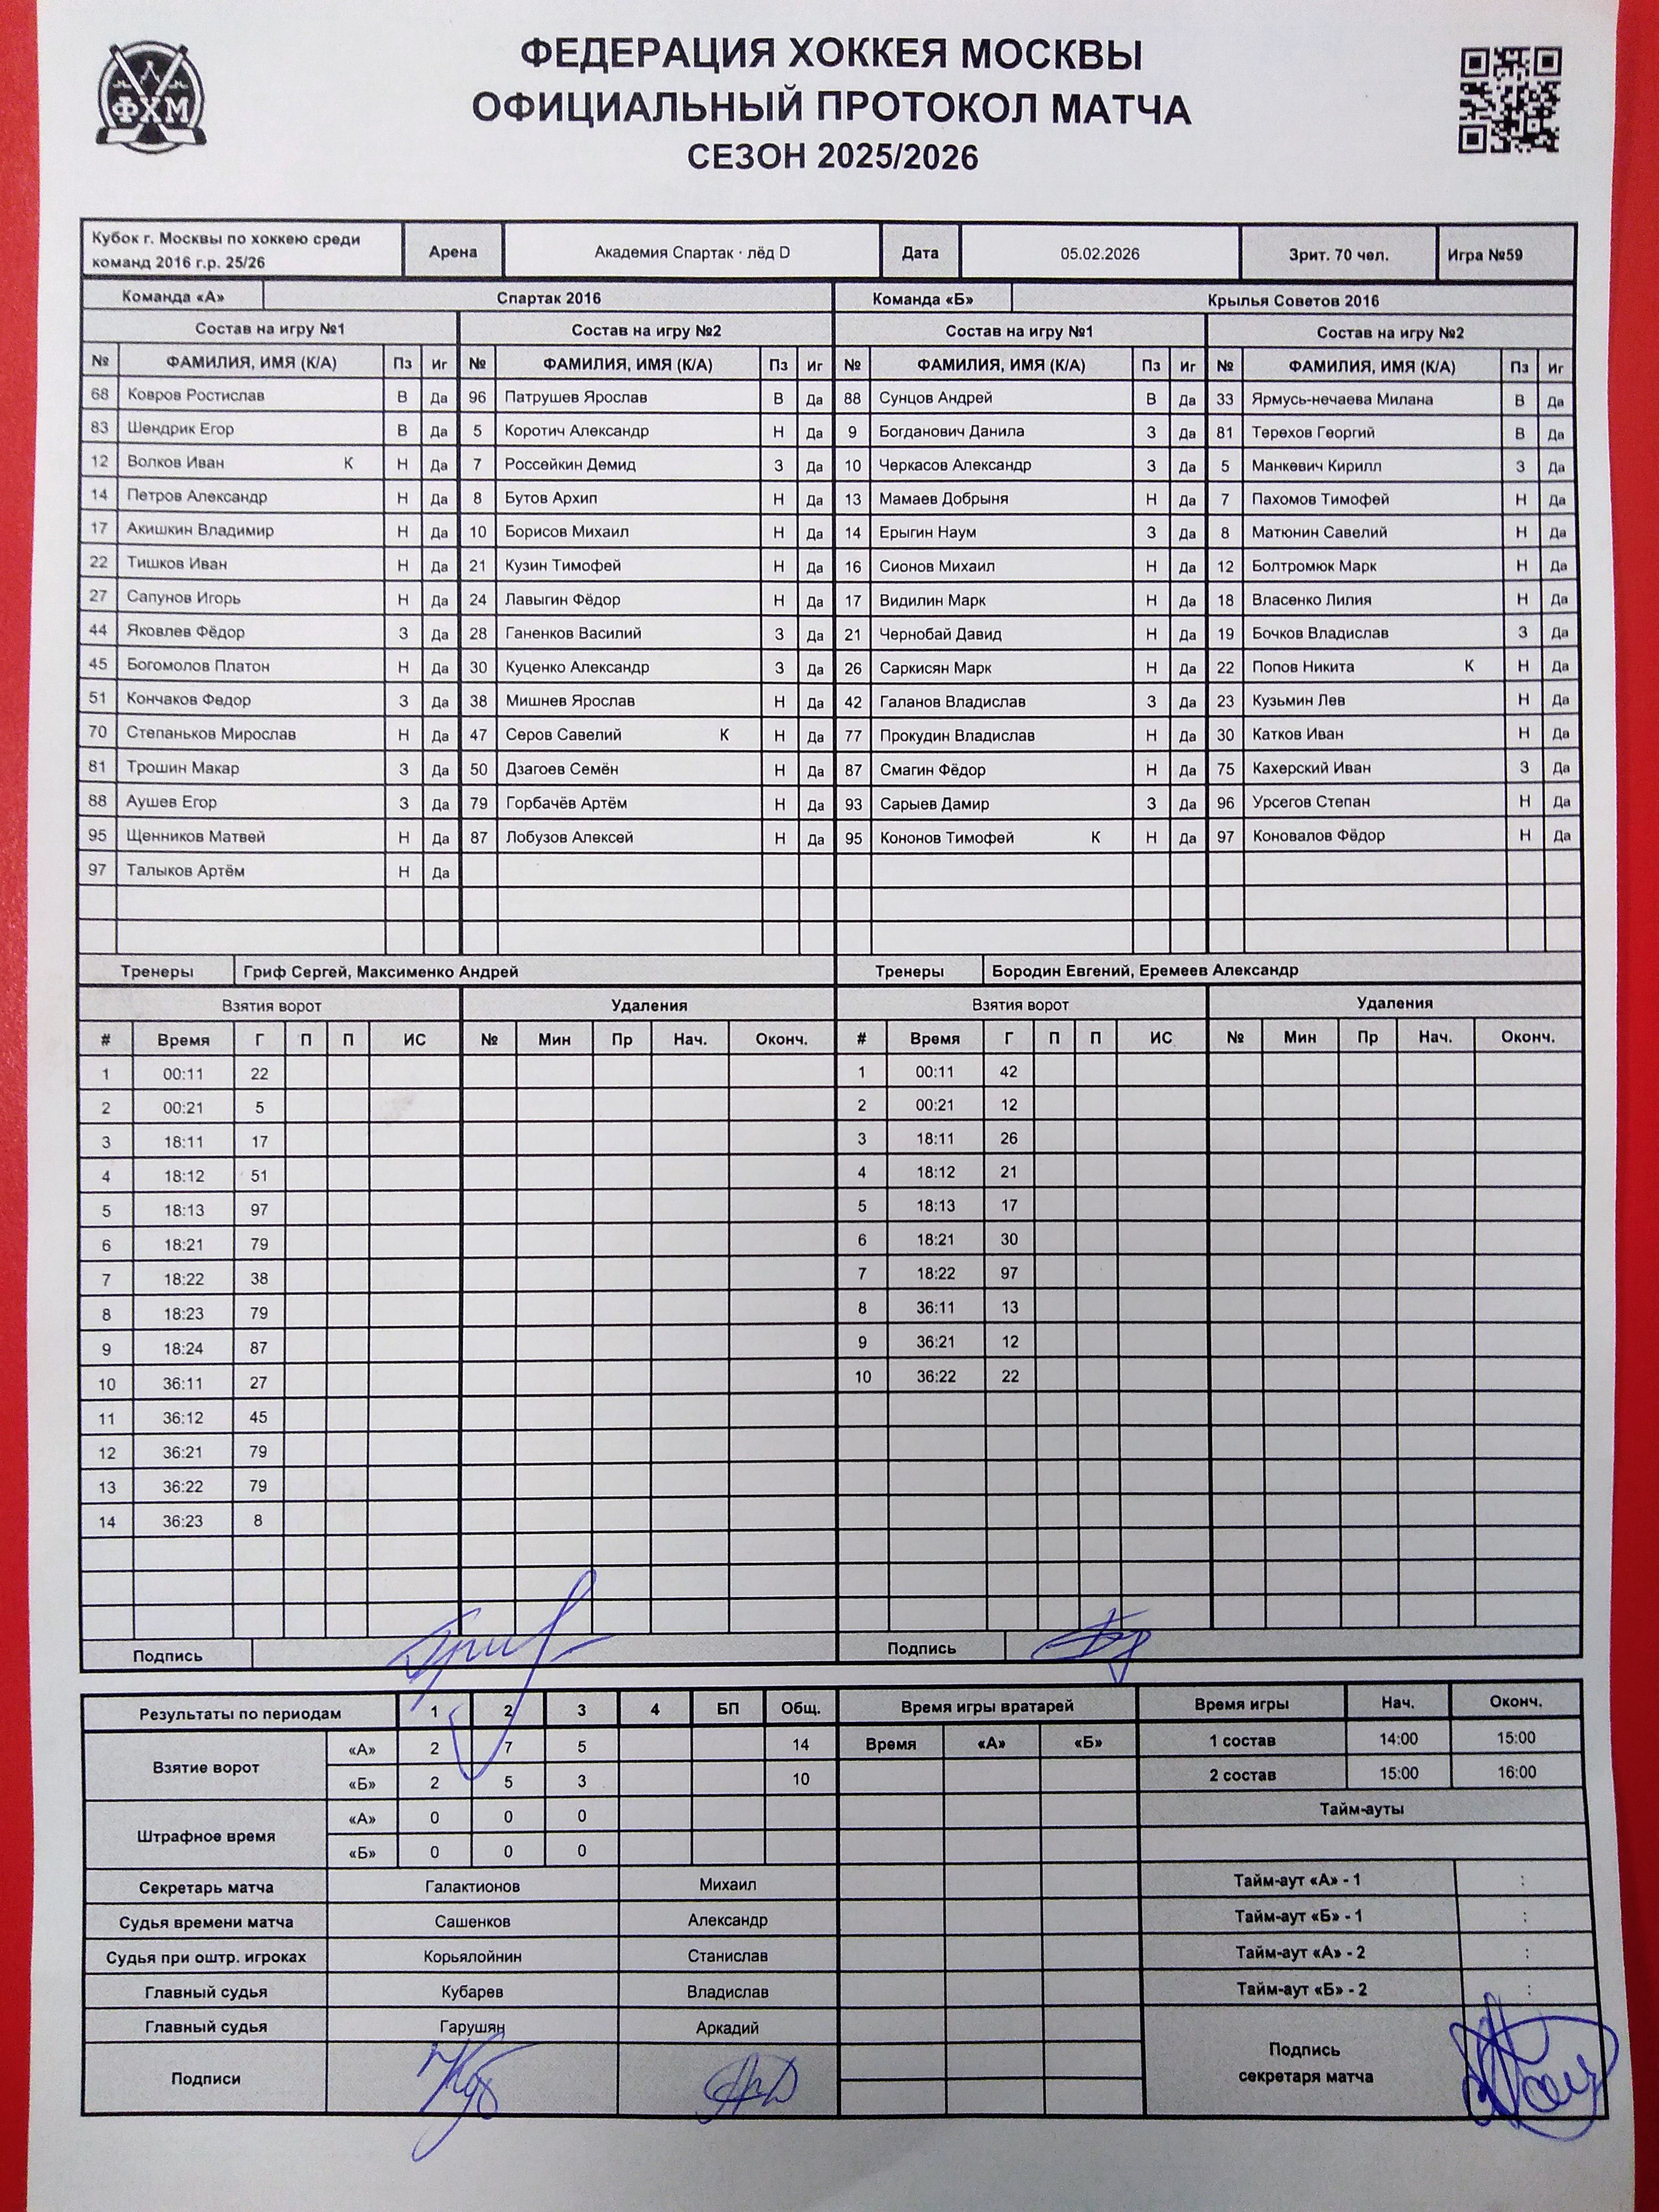 ФХМ
ФЕДЕРАЦИЯ ХОККЕЯ МОСКВЫ
ОФИЦИАЛЬНЫЙ ПРОТОКОЛ МАТЧА
СЕЗОН 2025/2026
Кубок г. Москвы по хоккею среди команд 2016 г.р. 25/26 Арена Академия Спартак · лёд D Дата 05.02.2026 Зрит. 70 чел. Игра №59
Команда «А» Спартак 2016 Команда «Б» Крылья Советов 2016
Состав на игру №1 Состав на игру №2 Состав на игру №1 Состав на игру №2
№ ФАМИЛИЯ, ИМЯ (К/А) Пз Иг № ФАМИЛИЯ, ИМЯ (К/А) Пз Иг № ФАМИЛИЯ, ИМЯ (К/А) Пз Иг № ФАМИЛИЯ, ИМЯ (К/А) Пз Иг
68 Ковров Ростислав В Да 96 Патрушев Ярослав В Да 88 Сунцов Андрей В Да 33 Ярмусь-нечаева Милана В Да
83 Шендрик Егор В Да 5 Коротич Александр Н Да 9 Богданович Данила З Да 81 Терехов Георгий В Да
12 Волков Иван К Н Да 7 Россейкин Демид З Да 10 Черкасов Александр З Да 5 Манкевич Кирилл З Да
14 Петров Александр Н Да 8 Бутов Архип Н Да 13 Мамаев Добрыня Н Да 7 Пахомов Тимофей Н Да
17 Акишкин Владимир Н Да 10 Борисов Михаил Н Да 14 Ерыгин Наум З Да 8 Матюнин Савелий Н Да
22 Тишков Иван Н Да 21 Кузин Тимофей Н Да 16 Сионов Михаил Н Да 12 Болтромюк Марк Н Да
27 Сапунов Игорь Н Да 24 Лавыгин Фёдор Н Да 17 Видилин Марк Н Да 18 Власенко Лилия Н Да
44 Яковлев Фёдор З Да 28 Ганенков Василий З Да 21 Чернобай Давид Н Да 19 Бочков Владислав З Да
45 Богомолов Платон Н Да 30 Куценко Александр З Да 26 Саркисян Марк Н Да 22 Попов Никита К Н Да
51 Кончаков Федор З Да 38 Мишнев Ярослав Н Да 42 Галанов Владислав З Да 23 Кузьмин Лев Н Да
70 Степаньков Мирослав Н Да 47 Серов Савелий К Н Да 77 Прокудин Владислав Н Да 30 Катков Иван Н Да
81 Трошин Макар З Да 50 Дзагоев Семён Н Да 87 Смагин Фёдор Н Да 75 Кахерский Иван З Да
88 Аушев Егор З Да 79 Горбачёв Артём Н Да 93 Сарыев Дамир З Да 96 Урсегов Степан Н Да
95 Щенников Матвей Н Да 87 Лобузов Алексей Н Да 95 Кононов Тимофей К Н Да 97 Коновалов Фёдор Н Да
97 Талыков Артём Н Да
Тренеры Гриф Сергей, Максименко Андрей Тренеры Бородин Евгений, Еремеев Александр
Взятия ворот Удаления Взятия ворот Удаления
# Время Г П П ИС № Мин Пр Нач. Оконч. # Время Г П П ИС № Мин Пр Нач. Оконч.
1 00:11 22 1 00:11 42
2 00:21 5 2 00:21 12
3 18:11 17 3 18:11 26
4 18:12 51 4 18:12 21
5 18:13 97 5 18:13 17
6 18:21 79 6 18:21 30
7 18:22 38 7 18:22 97
8 18:23 79 8 36:11 13
9 18:24 87 9 36:21 12
10 36:11 27 10 36:22 22
11 36:12 45
12 36:21 79
13 36:22 79
14 36:23 8
Подпись Подпись
Результаты по периодам 1 2 3 4 БП Общ. Время игры вратарей Время игры Нач. Оконч.
Взятие ворот «А» 2 7 5 14 Время «А» «Б» 1 состав 14:00 15:00
«Б» 2 5 3 10 2 состав 15:00 16:00
Штрафное время «А» 0 0 0 Тайм-ауты
«Б» 0 0 0
Секретарь матча Галактионов Михаил Тайм-аут «А» - 1 :
Судья времени матча Сашенков Александр Тайм-аут «Б» - 1 :
Судья при оштр. игроках Корьялойнин Станислав Тайм-аут «А» - 2 :
Главный судья Кубарев Владислав Тайм-аут «Б» - 2 :
Главный судья Гарушян Аркадий
Подписи Подпись секретаря матча